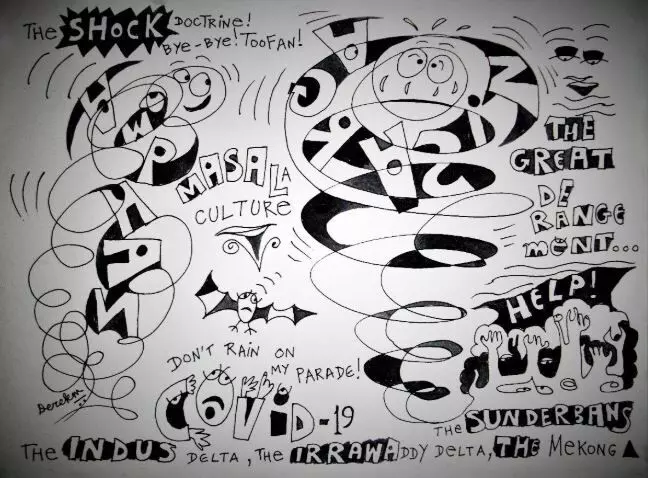 THE SHOCK DOCTRINE!
BYE-BYE! TOOFAN!
AMPHAN
NISARGA
MASALA
CULTURE
THE
GREAT
DE
RANGE
MENT...
HELP!
DON'T RAIN ON
MY PARADE!
COVID-19
THE SUNDERBANS
THE INDUS DELTA, THE IRRAWADDY DELTA, THE MEKONG